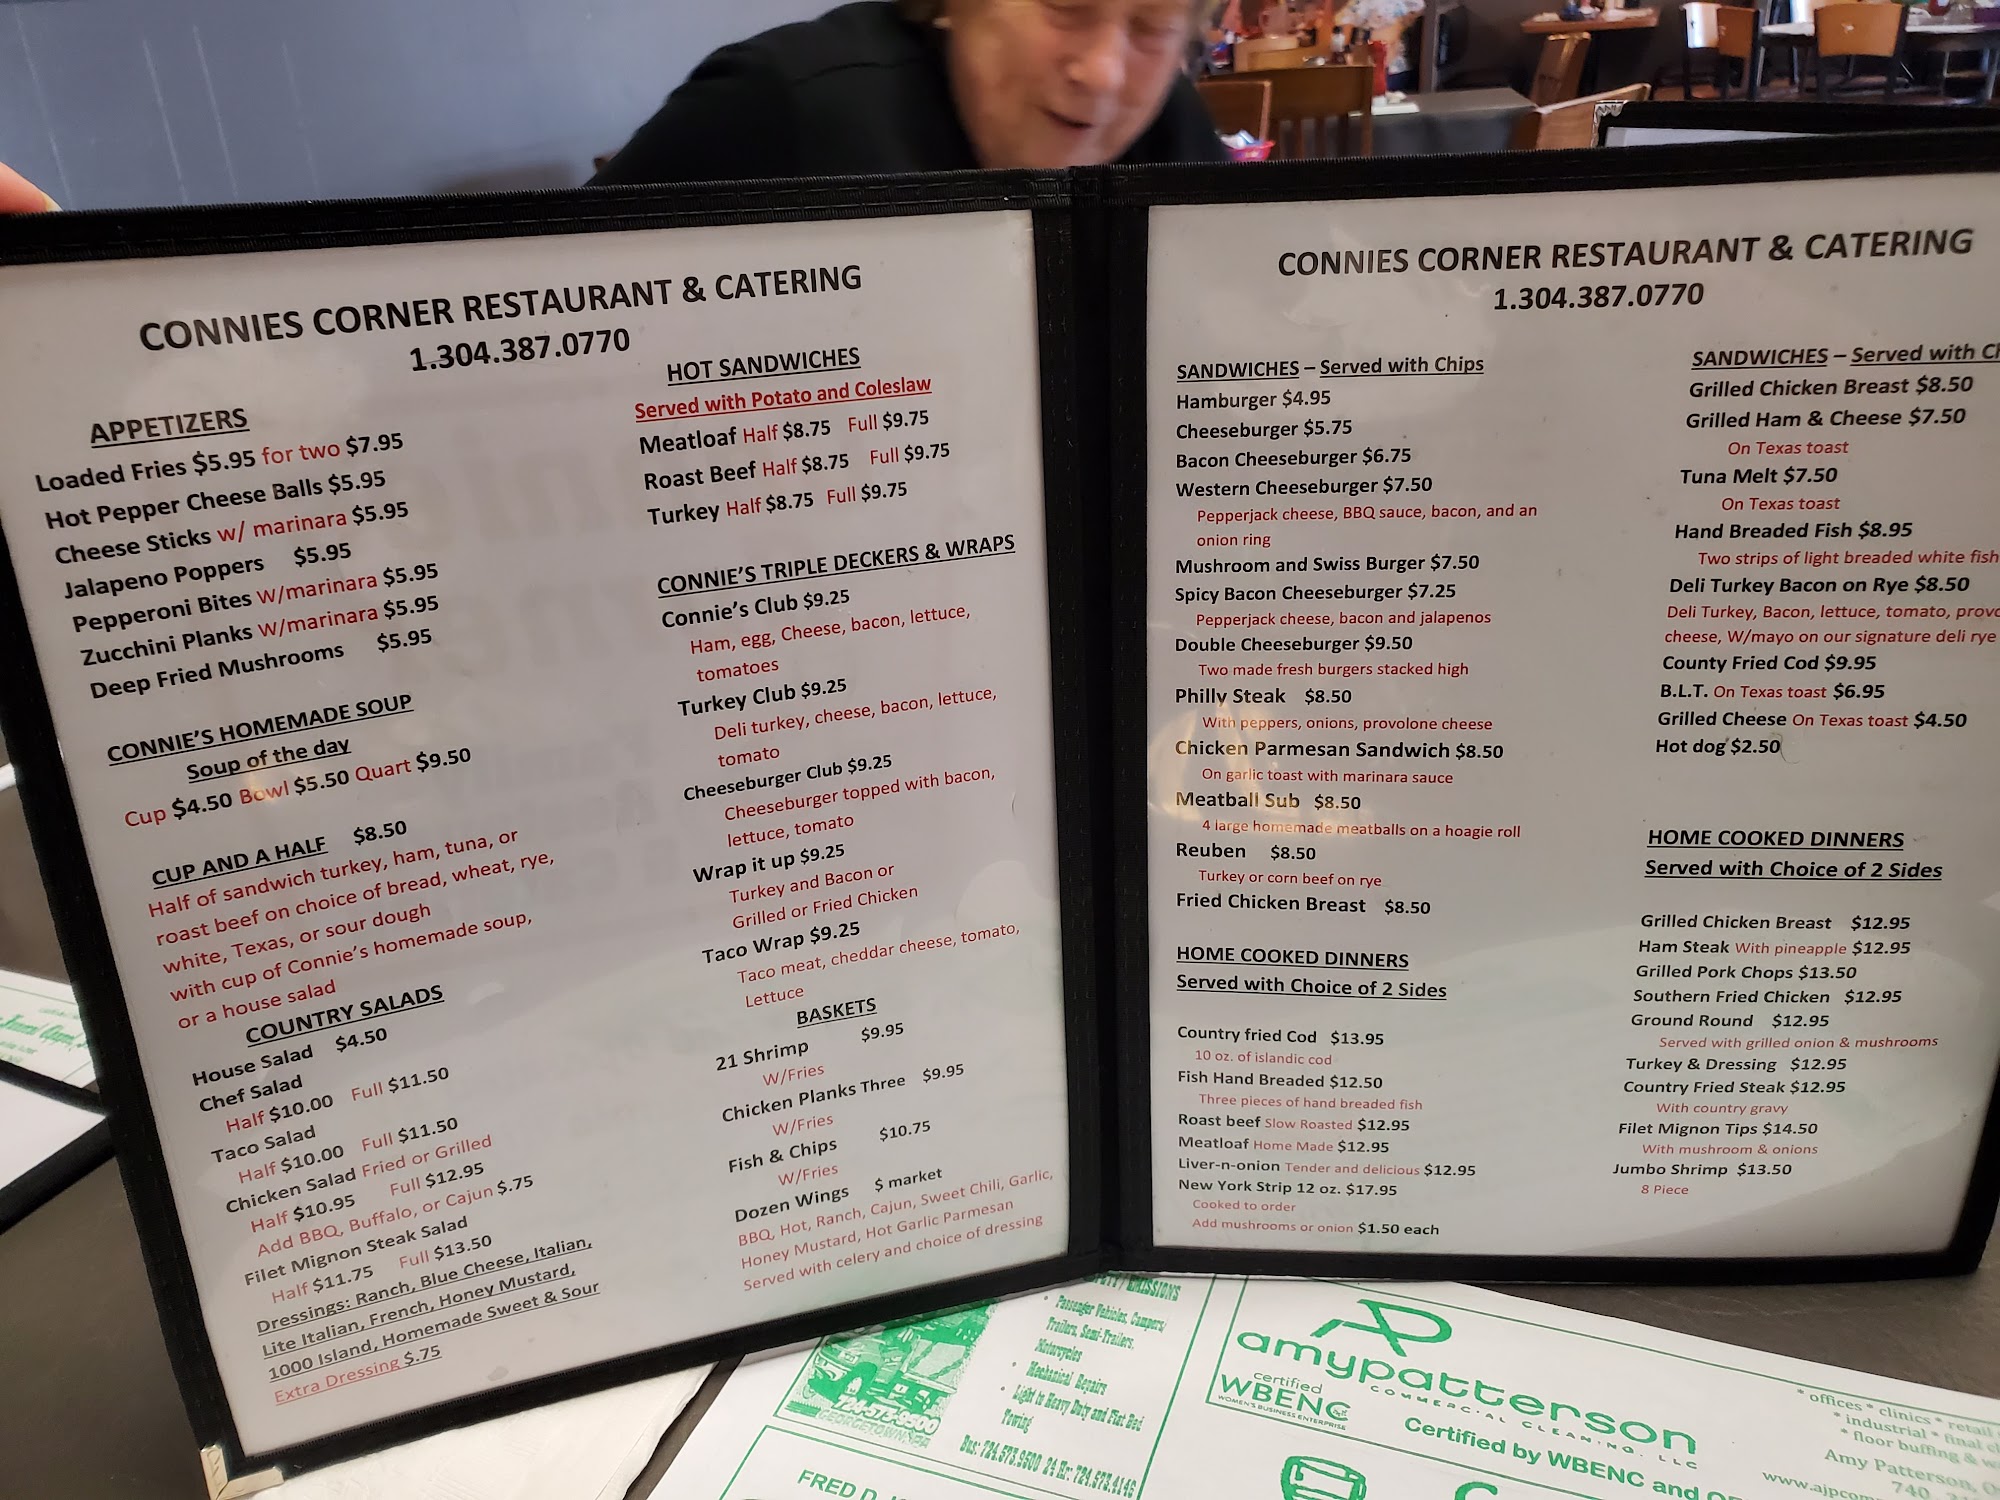 CONNIES CORNER RESTAURANT & CATERING
1.304.387.0770
APPETIZERS
Loaded Fries $5.95 for two $7.95
Hot Pepper Cheese Balls $5.95
Cheese Sticks w/ marinara $5.95
Jalapeno Poppers $5.95
Pepperoni Bites W/marinara $5.95
Zucchini Planks W/marinara $5.95
Deep Fried Mushrooms $5.95
CONNIE'S HOMEMADE SOUP
Soup of the day
Cup $4.50 Bowl $5.50 Quart $9.50
CUP AND A HALF $8.50
Half of sandwich turkey, ham, tuna, or
roast beef on choice of bread, wheat, rye,
white, Texas, or sour dough
with cup of Connie's homemade soup,
or a house salad
COUNTRY SALADS
House Salad $4.50
Chef Salad
Half $10.00 Full $11.50
Taco Salad
Half $10.00 Full $11.50
Chicken Salad Fried or Grilled
Half $10.95 Full $12.95
Add BBQ, Buffalo, or Cajun $.75
Filet Mignon Steak Salad
Half $11.75 Full $13.50
Dressings: Ranch, Blue Cheese, Italian,
Lite Italian, French, Honey Mustard,
1000 Island, Homemade Sweet & Sour
Extra Dressing $.75
HOT SANDWICHES
Served with Potato and Coleslaw
Meatloaf Half $8.75 Full $9.75
Roast Beef Half $8.75 Full $9.75
Turkey Half $8.75 Full $9.75
CONNIE'S TRIPLE DECKERS & WRAPS
Connie's Club $9.25
Ham, egg, Cheese, bacon, lettuce,
tomatoes
Turkey Club $9.25
Deli turkey, cheese, bacon, lettuce,
tomato
Cheeseburger Club $9.25
Cheeseburger topped with bacon,
lettuce, tomato
Wrap it up $9.25
Turkey and Bacon or
Grilled or Fried Chicken
Taco Wrap $9.25
Taco meat, cheddar cheese, tomato,
Lettuce
BASKETS
21 Shrimp $9.95
W/Fries
Chicken Planks Three $9.95
W/Fries
Fish & Chips $10.75
W/Fries
Dozen Wings $ market
BBQ, Hot, Ranch, Cajun, Sweet Chili, Garlic,
Honey Mustard, Hot Garlic Parmesan
Served with celery and choice of dressing
CONNIES CORNER RESTAURANT & CATERING
1.304.387.0770
SANDWICHES – Served with Chips
Hamburger $4.95
Cheeseburger $5.75
Bacon Cheeseburger $6.75
Western Cheeseburger $7.50
Pepperjack cheese, BBQ sauce, bacon, and an
onion ring
Mushroom and Swiss Burger $7.50
Spicy Bacon Cheeseburger $7.25
Pepperjack cheese, bacon and jalapenos
Double Cheeseburger $9.50
Two made fresh burgers stacked high
Philly Steak $8.50
With peppers, onions, provolone cheese
Chicken Parmesan Sandwich $8.50
On garlic toast with marinara sauce
Meatball Sub $8.50
4 large homemade meatballs on a hoagie roll
Reuben $8.50
Turkey or corn beef on rye
Fried Chicken Breast $8.50
HOME COOKED DINNERS
Served with Choice of 2 Sides
Country fried Cod $13.95
10 oz. of islandic cod
Fish Hand Breaded $12.50
Three pieces of hand breaded fish
Roast beef Slow Roasted $12.95
Meatloaf Home Made $12.95
Liver-n-onion Tender and delicious $12.95
New York Strip 12 oz. $17.95
Cooked to order
Add mushrooms or onion $1.50 each
SANDWICHES – Served with Ch
Grilled Chicken Breast $8.50
Grilled Ham & Cheese $7.50
On Texas toast
Tuna Melt $7.50
On Texas toast
Hand Breaded Fish $8.95
Two strips of light breaded white fish
Deli Turkey Bacon on Rye $8.50
Deli Turkey, Bacon, lettuce, tomato, provo
cheese, W/mayo on our signature deli rye
County Fried Cod $9.95
B.L.T. On Texas toast $6.95
Grilled Cheese On Texas toast $4.50
Hot dog $2.50
HOME COOKED DINNERS
Served with Choice of 2 Sides
Grilled Chicken Breast $12.95
Ham Steak With pineapple $12.95
Grilled Pork Chops $13.50
Southern Fried Chicken $12.95
Ground Round $12.95
Served with grilled onion & mushrooms
Turkey & Dressing $12.95
Country Fried Steak $12.95
With country gravy
Filet Mignon Tips $14.50
With mushroom & onions
Jumbo Shrimp $13.50
8 Piece
/ EMISSIONS
• Passenger Vehicles, Campers,
Trailers, Semi-Trailers,
Motorcycles
• Mechanical Repairs
• Light to Heavy Duty and Flat Bed
Towing
Bus: 724.573.9500 24 Hr: 724.573.4146
724-573-9500
GEORGETOWN, PA
FRED D.
amypatterson
COMMERCIAL CLEANING, LLC
certified
WBENC
WOMEN'S BUSINESS ENTERPRISE
Certified by WBENC and
* offices * clinics * retail
* industrial * final cl
* floor buffing & w
Amy Patterson, O
740
www.ajpcom